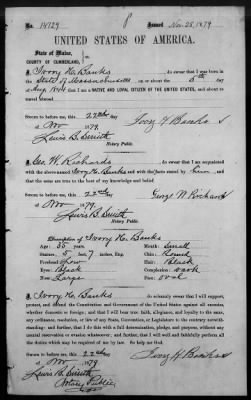 No. 14729 Issued Nov. 25, 1879
UNITED STATES OF AMERICA.
State of Maine,
COUNTY OF CUMBERLAND,
I, Ivory H. Banks, do swear that I was born in the
State of Massachusetts, on or about the day
of Aug 1844 that I am a NATIVE AND LOYAL CITIZEN OF THE UNITED STATES, and about to
travel abroad
Sworn to before me, this 22nd day
of Nov 1879. Ivory H Banks
Lewis B. Smith
Notary Public.
I, Geo. W. Richards, do swear that I am acquainted
with the above named Ivory H. Banks and with the facts stated by him, and
that the same are true to the best of my knowledge and belief.
Sworn to before me, this 22nd day
of Nov 1879. George W Richards
Lewis B. Smith
Notary Public.
Description of Ivory H. Banks
Age: 35 years. Mouth: Small
Stature: 5 feet, 7 inches, Eng. Chin: Round
Forehead: Low Hair: Black
Eyes: Black Complexion: Dark
Nose: Large Face: Oval
I, Ivory H. Banks do solemnly swear that I will support,
protect, and defend the Constitution and Government of the United States against all enemies,
whether domestic or foreign; and that I will bear true faith, allegiance, and loyalty to the same,
any ordinance, resolution, or law of any State, Convention, or Legislature to the contrary notwith-
standing; and further, that I do this with a full determination, pledge, and purpose, without any
mental reservation or evasion whatsoever; and further, that I will well and faithfully perform all
the duties which may be required of me by law. So help me God.
Sworn to before me, this 22nd day
of Nov 1879 Ivory H Banks
Lewis B. Smith
Notary Public